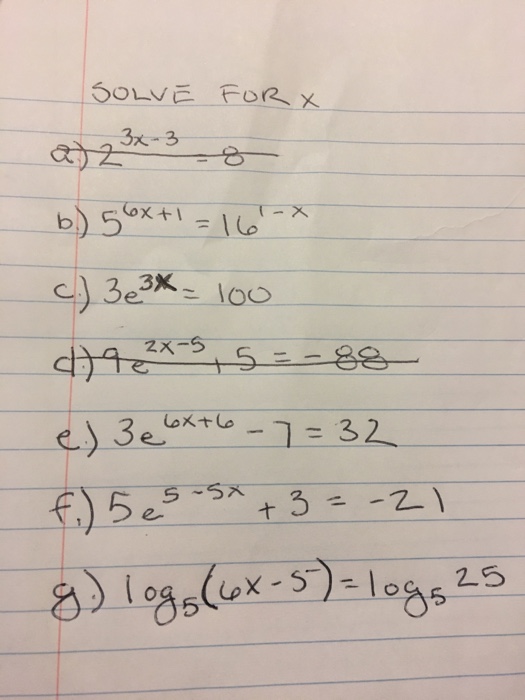 SOLVE FOR x
a.) 2^3x-3 = 8
b.) 5^6x+1 = 16^1-x
c.) 3e^3x = 100
d.) 9e^2x-5 + 5 = -88
e.) 3e^6x+6 - 7 = 32
f.) 5e^5-5x + 3 = -21
g.) log₅(6x-5) = log₅ 25